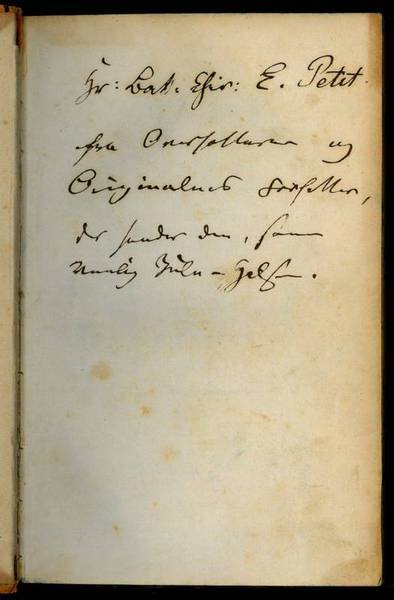 Hr: Bat: Chir: E. Petit.
fra Oversætteren og
Originalens Forfatter,
der sender den, som
venlig Jule-Hilsen.